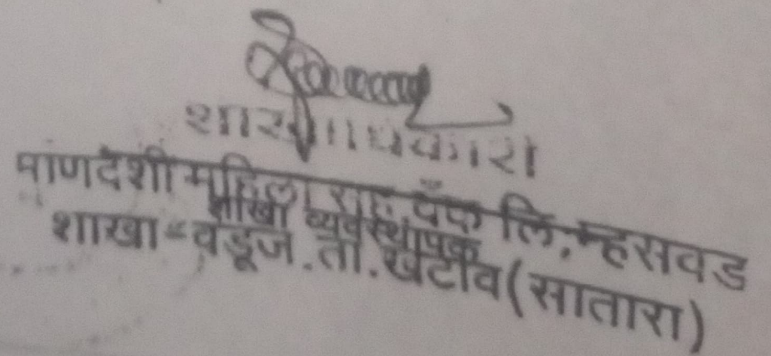 शाखाधिकारी
माणदेशी महिला सह. बँक लि. म्हसवड
शाखा व्यवस्थापक
शाखा-वडूज. ता. खटाव (सातारा)